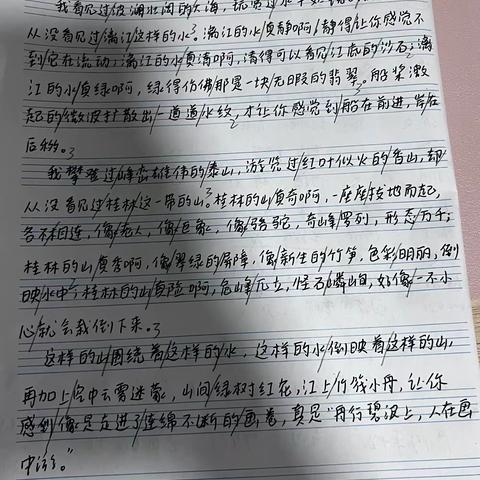 我看见过波澜壮阔的大海，玩赏过水平如镜的
从没看见过漓江这样的水。漓江的水真静啊，静得让你感觉不
到它在流动；漓江的水真清啊，清得可以看见江底的沙石；漓
江的水真绿啊，绿得仿佛那是一块无瑕的翡翠。船桨激
起的微波扩散出一道道水纹，才让你感觉到船在前进，岸在
后移。
我攀登过峰峦雄伟的泰山，游览过红叶似火的香山，却
从没看见过桂林这一带的山。桂林的山真奇啊，一座座拔地而起，
各不相连，像老人，像巨象，像骆驼，奇峰罗列，形态万千；
桂林的山真秀啊，像翠绿的屏障，像新生的竹笋，色彩明丽，倒
映水中；桂林的山真险啊，危峰兀立，怪石嶙峋，好像一不小
心就会栽倒下来。
这样的山围绕着这样的水，这样的水倒映着这样的山，
再加上空中云雾迷蒙，山间绿树红花，江上竹筏小舟，让你
感到像是走进了连绵不断的画卷，真是“舟行碧波上，人在画
中游。”